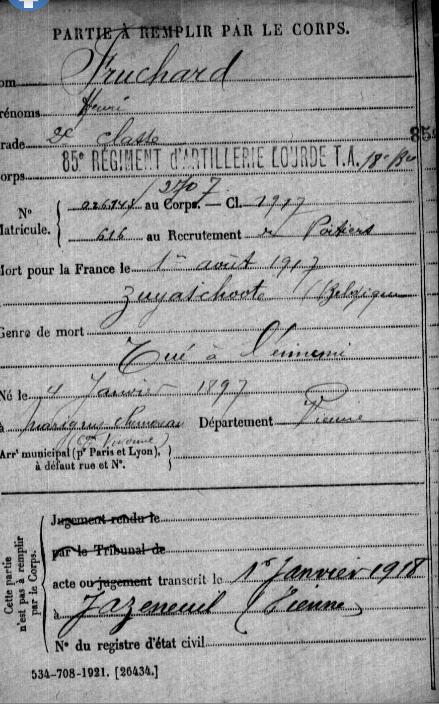 PARTIE À REMPLIR PAR LE CORPS.
om Fruchard
rénoms Henri
rade 2e classe
orps 85e RÉGIMENT D'ARTILLERIE LOURDE T.A. 85e
N° Matricule. { au Corps. — Cl. 1917
616 au Recrutement de Poitiers
Mort pour la France le 1er août 1917
Zuyaschoote (Belgique
Genre de mort
Tué à l'ennemi
Né le 4 Janvier 1897
à Marigny Chemereau Département Vienne
Arrt municipal (pr Paris et Lyon), à défaut rue et N°. }
Cette partie n'est pas à remplir par le Corps. {
Jugement rendu le
par le Tribunal de
acte ou jugement transcrit le 1er Janvier 1918
à Jazeneuil (Vienne)
N° du registre d'état civil
534-708-1921. [26434.]